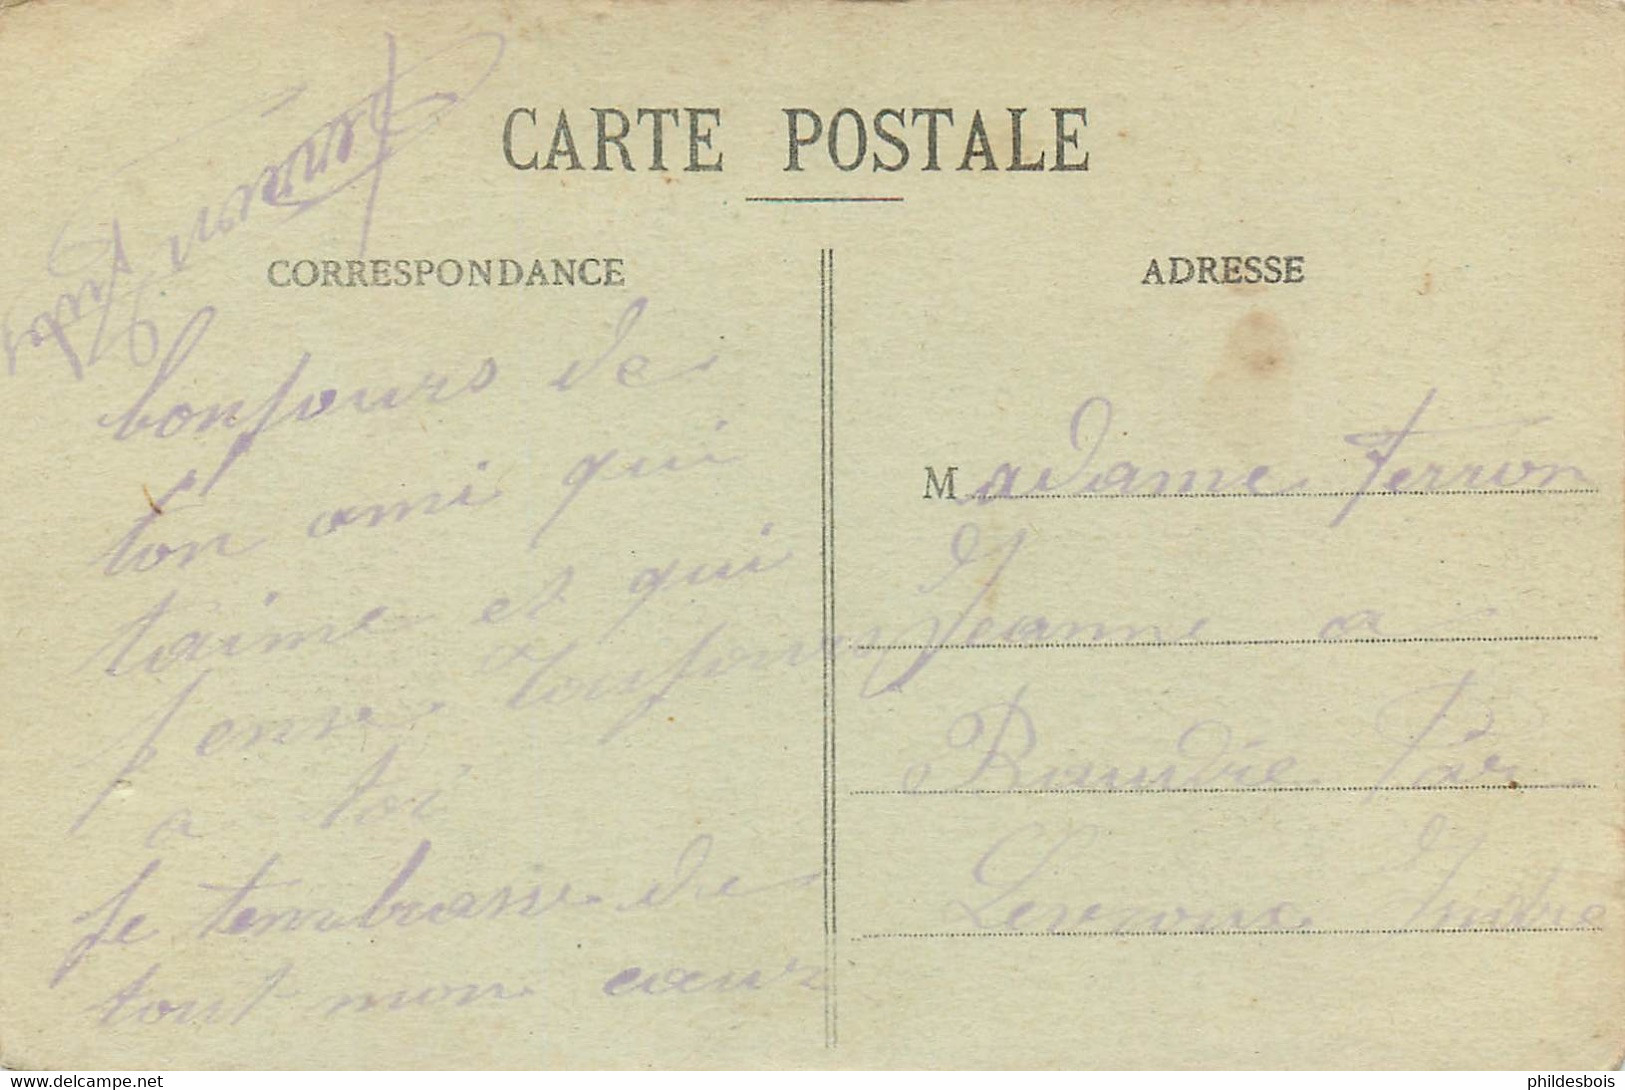 CARTE POSTALE
CORRESPONDANCE
bonjours de
ton ami qui
taime et qui
pense toujours
a toi
Je tembrasse de
tout mon cœur
ADRESSE
Madame Ferron
Jeanne a
Par
Levroux Indre
phildesbois
www.delcampe.net